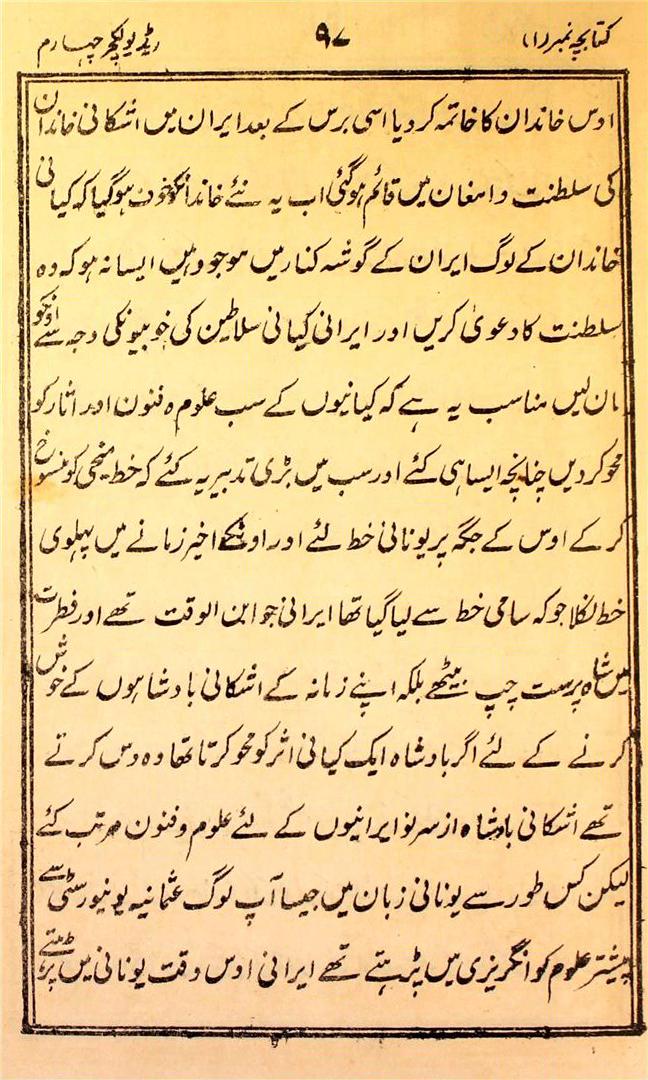 کتابچہ نمبر (۱) ۹۷ ریڈیو لکچر چہارم
اوس خاندان کا خاتمہ کردیا اسی برس کے بعد ایران میں اشکانی خاندان
کی سلطنت دامغان میں قائم ہوگئی اب یہ نئے خاندانکو خوف ہوگیا کہ کیانی
خاندان کے لوگ ایران کے گوشہ کنار میں موجود ہیں ایسا نہ ہو کہ وہ
سلطنت کا دعویٰ کریں اور ایرانی کیانی سلاطین کی خوبیونکی وجہ سے اونکو
مان لیں مناسب یہ ہے کہ کیانیوں کے سب علوم و فنون اور اثار کو
محو کردیں چنانچہ ایسا ہی کئے اور سب میں بڑی تدبیر یہ کئے کہ خط میخی کو منسوخ
کرکے اوس کے جگہ پر یونانی خط لئے اور اونکے اخیر زمانے میں پہلوی
خط نکلا جو کہ سامی خط سے لیا گیا تھا ایرانی جو ابن الوقت تھے اور فطرت
میں شاہ پرست چپ بیٹھے بلکہ اپنے زمانہ کے اشکانی بادشاہوں کے خوش
کرنے کے لئے اگر بادشاہ ایک کیانی اثر کو محو کرتا تھا وہ دس کرتے
تھے اشکانی بادشاہ از سر نو ایرانیوں کے لئے علوم و فنون مرتب کئے
لیکن کس طور سے یونانی زبان میں جیسا آپ لوگ عثمانیہ یونیورسٹی سے
پیشتر علوم کو انگریزی میں پڑہتے تھے ایرانی اوس وقت یونانی میں پڑہتے